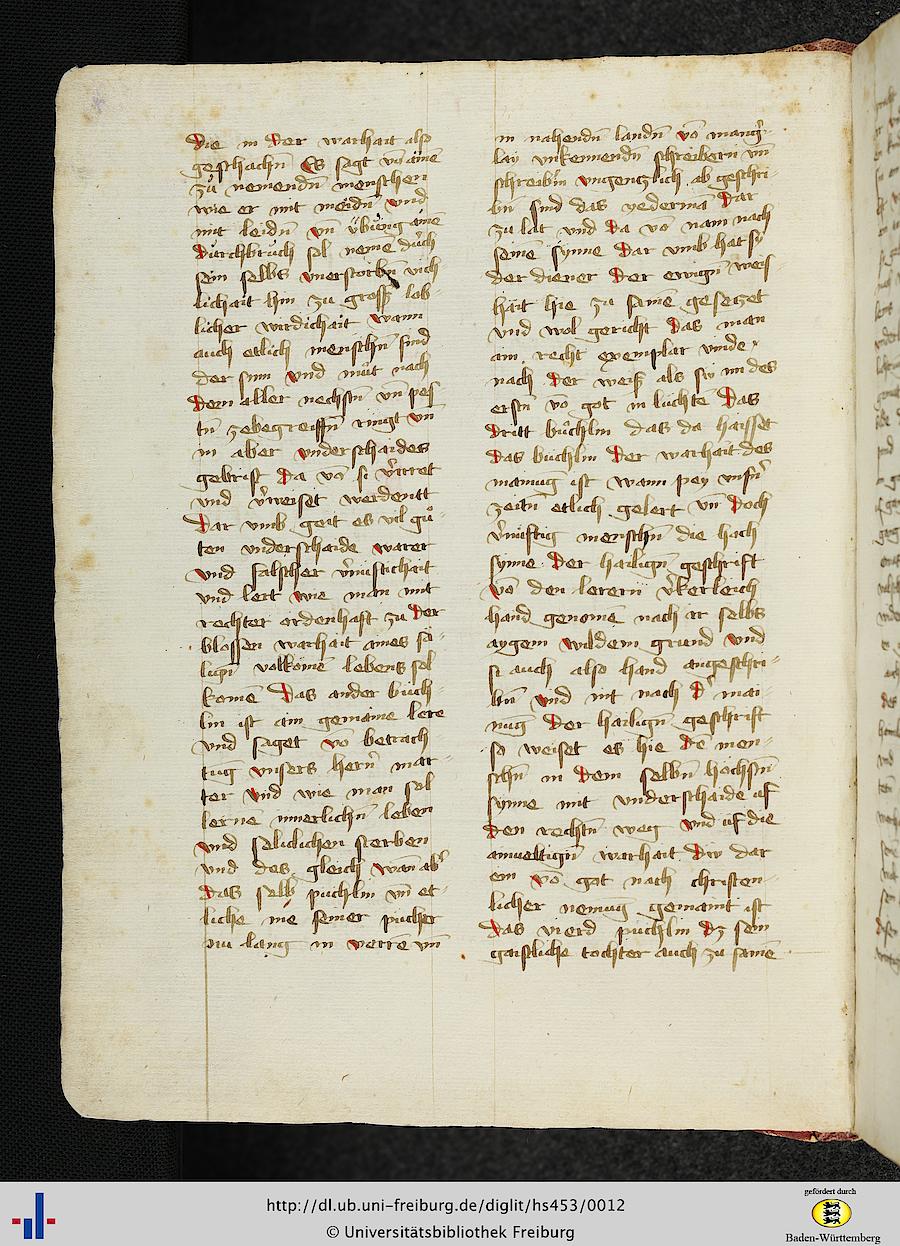 die in der warhait also
geschachn̄ Es sagt vō aīnē
zů nemendn̄ menschen
wie er mit meidn̄ vnd
mit leidn̄ vn̄ v̈bůng aine
durchbruch sol neme důrch
sein selbs vnerstorbn̄ vich
lichait hin zu grosſz lob-
licher wirdichait wann
auch etlich menschn̄ sind
der sinn vnd můt nach
dem aller nechstn̄ vn̄ pes
tn̄ zebegreiffn̄ ringt vn̄
in aber vnderschaides
gebrist da vō si v̄irret
vnd v̄weiset werdentt
Dar vmb geit es vil gů-
ten vnderschaide warer
vnd falscher v̄nůftichait
vnd lert wie man mit
rechter ordenhaft zu der
blossen warhait aines sä-
lign̄ volkomē lebens sol
komē Das ander bůch-
lin ist ain gemaine lere
vnd saget vō betrach-
tūg vnsers hern̄ mar-
ter vnd wie man sol
lernē innerlichn̄ leben
vnd seliclichen sterben
vnd des gleich wān ab̄
das selb puchlin vn̄ et-
liche me seiner pücher
nu lang in verrē vn̄
in nahendn̄ landn̄ vō manḡ-
lay vnkennendn̄ schreibern vn̄
schreiberin vngenczlich ab geschri-
bn̄ sind das yederman dar
zu lait vnd da vō nam nach
seinē synne Dar vmb hat sy
der diener der ewign̄ weis
hait hie zu samē gesetzet
vnd wol gericht das man
ain recht exemplar vinde
nach der weisz als sy im des
erstn̄ vō got in lůchte Das
dritt bůchlin das da haisset
das buchlin der warhait des
mainūg ist wann pey vnsrn̄
zeitn̄ etlich gelert vn̄ doch
v̄nůftig menschn̄ die hach
synne der hailign̄ geschrift
vō den lerern v̄kerleich
hand genomē nach ir selbs
aygem wildem grund vnd
si auch also hand angeschri-
bn̄ vnd nit nach d̄ mai-
nūg der hailign̄ geschrift
so weiset es hie dē men-
schn̄ in dem selbn̄ hochstn̄
synne mit vnderschaide uf
den rechtn̄ weg vnd uf die
ainueltign̄ warhait Div dar
ein vō got nach christen-
licher nemūg gemaint ist
Das vierd puchlin dz sein
gaistliche tochter auch zu samē
http://dl.ub.uni-freiburg.de/diglit/hs453/0012
© Universitätsbibliothek Freiburg
gefördert durch
Baden-Württemberg